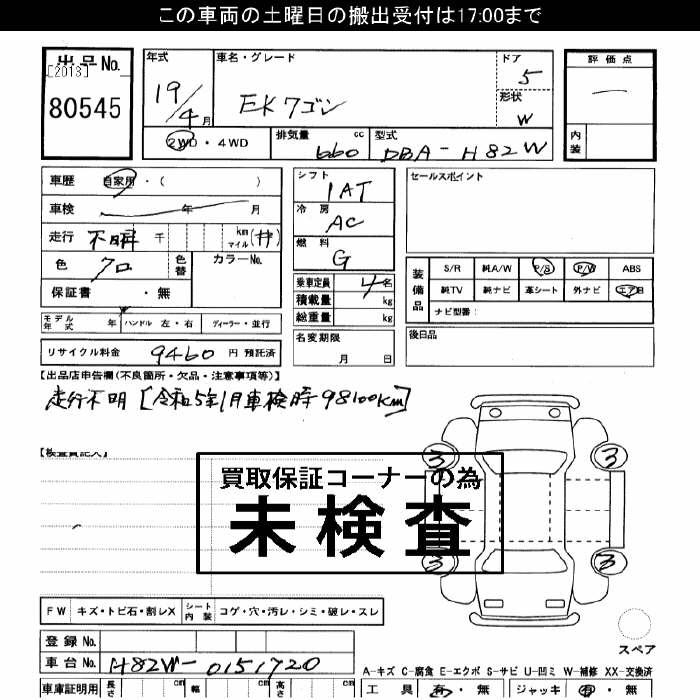 この車両の土曜日の搬出受付は17:00まで
出品No.
[2013]
80545
年式
19/4月
車名・グレード
EKワゴン
ドア
5
形状
W
評価点
内装
2WD・4WD
排気量 cc
660
型式
DBA-H82W
車歴 自家用・( )
車検 年 月
走行 不明 千 km マイル
色 クロ 色替 カラーNo.
保証書 ・無
モデル年式 年 ハンドル 左・右 ディーラー・並行
リサイクル料金 9460 円 預託済
シフト
IAT
冷房
AC
燃料
G
乗車定員 4名
積載量 kg
総重量 kg
名変期限
月 日
セールスポイント
装備品
S/R 純A/W P/S P/W ABS
純TV 純ナビ 革シート 外ナビ エアB
ナビ型番:
後日品
【出品店申告欄(不良箇所・欠品・注意事項等)】
走行不明 [令和5年1月車検時98100km]
【検査員記入】
買取保証コーナーの為
未検査
3
3
3
3
スペア
FW キズ・トビ石・割レX シート内装 コゲ・穴・汚レ・シミ・破レ・スレ
登録No.
車台No. H82W-0151720
A-キズ C-腐食 E-エクボ S-サビ U-凹ミ W-補修 XX-交換済
車庫証明用 長さ cm 幅 cm 高さ cm
工具 有・無 ジャッキ 有・無